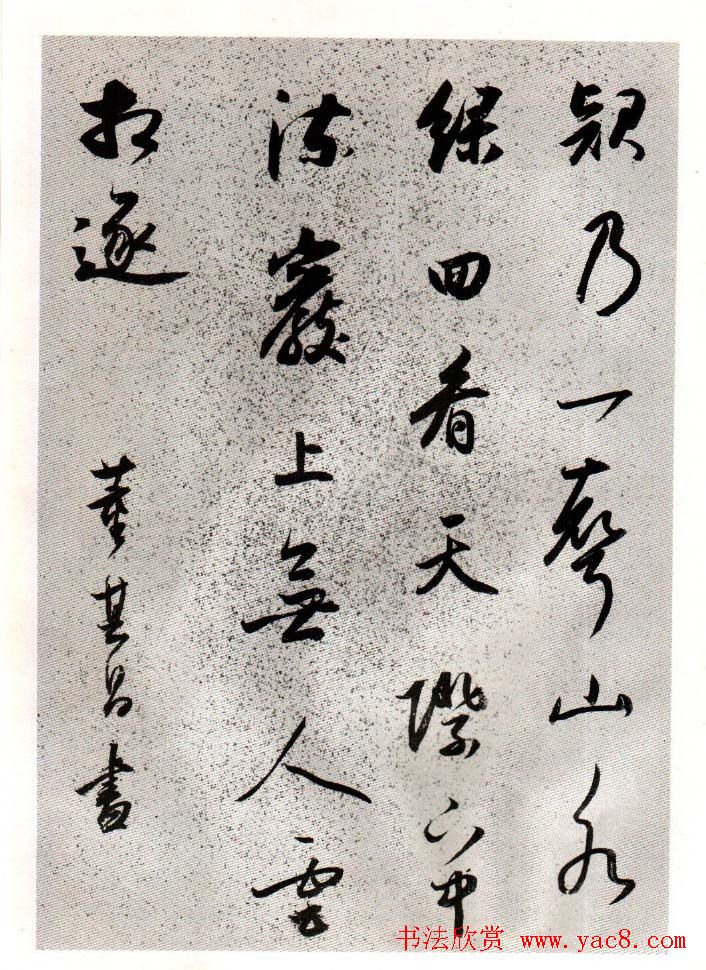 欸乃一聲山水
綠回看天際下中
流巖上無人雲
相逐
董其昌書
书法欣赏 www.yac8.com